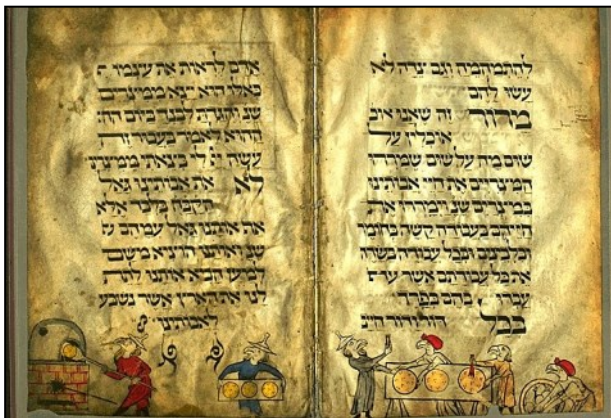 להתמהמה וגם צדה לא
עשו להם
מרור זה שאנו אוכ
אוכלין על
שום מה על שום שמררו
המצרים את חיי אבותינו
במצרים שנ וימררו את
חייהם בעבודה קשה בחומר
ובלבנים ובכל עבודה בשדה
את כל עבודתם אשר
עבדו בהם בפרך
בכל דור ודור חייב
אדם לראות את עצמו
כאלו הוא יצא ממצרים
שנ והגדת לבנך ביום הה
ההוא לאמר בעבור זה
עשה יי לי בצאתי ממצרים
לא את אבותינו גאל
הקבה בלבד אלא
את אותנו גאל עמהם ש
שנ ואותנו הוציא משם
למען הביא אותנו לתת
לנו את הארץ אשר נשבע
לאבותינו